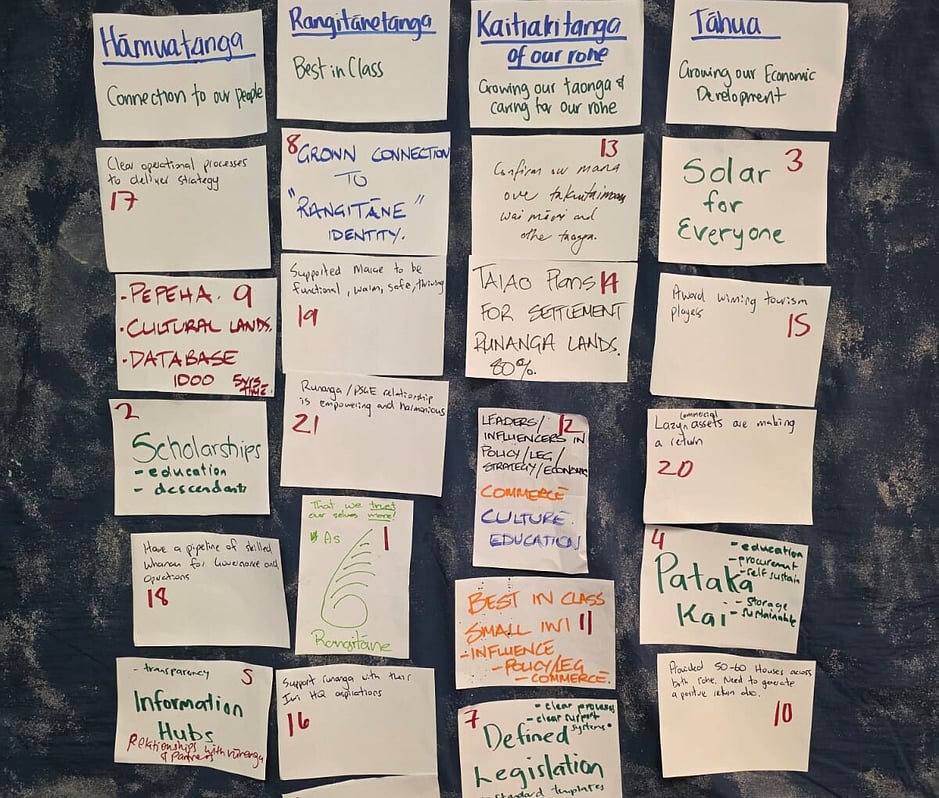 Hāmuatanga
Connection to our people
Clear operational processes
to deliver strategy
17
- PEPEHA. 9
- CULTURAL LANDS.
- DATABASE
1000 5YRS
TIME.
2
Scholarships
- education
- descendants
Have a pipeline of skilled
whanau for Governance and
operations
18
- transparency 5
Information
Hubs
Relationships with runanga
& partners
Rangitānetanga
Best in Class
8 GROWN CONNECTION
TO
"RANGITĀNE"
IDENTITY.
Supported Marae to be
functional, warm, safe, thriving
19
Runanga/PSGE relationship
is empowering and harmonious
21
That we trust
our selves more!
As 1
Rangitāne
Support runanga with their
Iwi HQ aspirations
16
Kaitiakitanga
of our rohe
Growing our taonga &
caring for our rohe
13
Confirm our mana
over takutaimoana
wai māori and
other taonga.
TAIAO Plans 14
FOR SETTLEMENT
RUNANGA LANDS.
80%.
LEADERS/ 12
INFLUENCERS IN
POLICY/LEG/
STRATEGY/ECONOMIC
COMMERCE
CULTURE
EDUCATION
BEST IN CLASS
SMALL IWI 11
- INFLUENCE
- POLICY/LEG
- COMMERCE.
7 - clear processes
- clear support
systems
Defined
Legislation
- standard templates
Tāhua
Growing our Economic
Development
3
Solar
for
Everyone
Award wining tourism
players
15
commercial
Lazy assets are making
a return
20
4
- education
- procurement
- self sustain
Pataka
Kai
- storage
- sustainable
Provided 50-60 Houses across
both rohe. Need to generate
a positive return also.
10